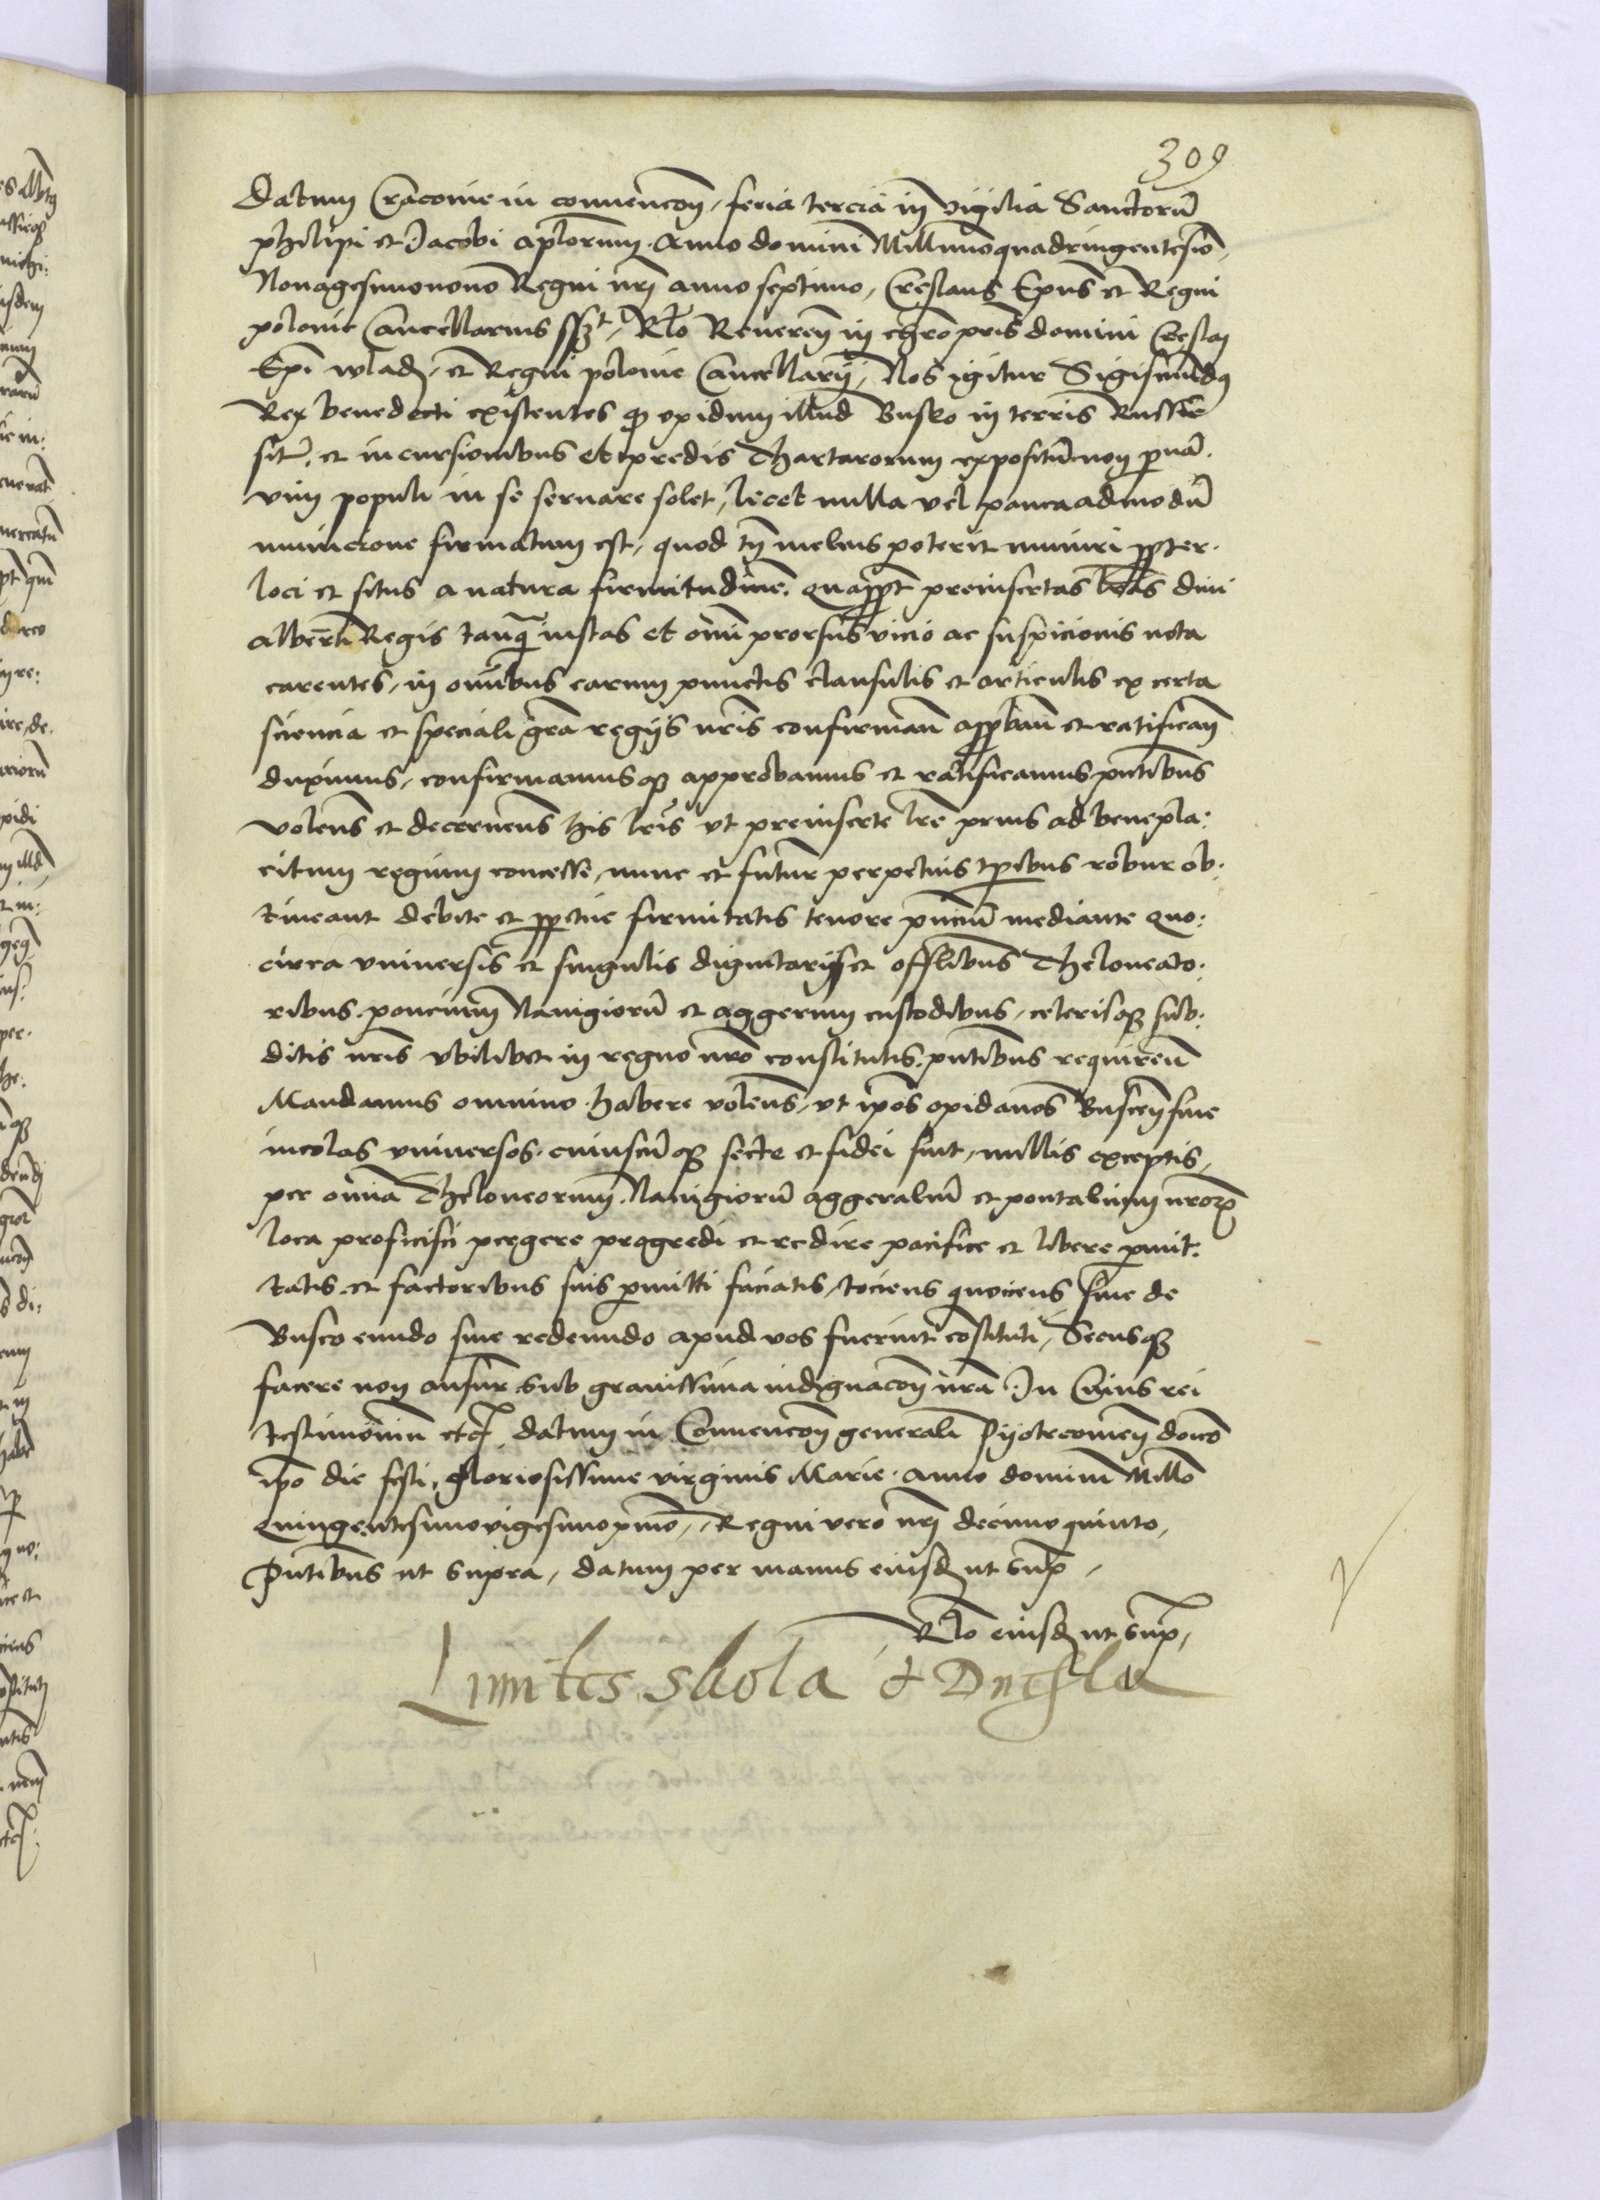 309
Datum Cracovie in convencoñ, feria tercia in vigilia Sanctorũ
philipi et Jacobi aplorum. Anno domini Millimoquadringentesio,
Nonagesimonono Regni nrĩ anno septimo, Creslaus Epus et Regni
polonie Cancellarius sszt, Rlo Reverenn in chro pris domini Creslay
Epi wlad, et Regni polonie Cancellarij, Nos igitur Sigismundus
Rex benedocti existentes q opidum illud Busko in terris Russie
sitũ, et incursionibus et predis Thartarorum expositũ non parvã.
vim populi in se servare solet, licet nulla vel pauca admodũ
municione firmatum est, quod tñ melius poterit muniri ppter.
loci et situs a natura firmitudinẽ. quappt preinsertas lras divi
Alberti Regis tanq iustas et omi prorsus vicio ac suspicionis nota
carentes, in omibus earum punctis clausulis et articulis ex certa
sciencia et speciali gra regijs nris confirmañ appbañ et ratificañ
duximus, confirmamusq approbamus et ratificamus pntibus
volens et decernens his lris ut preinserte lre prius ad benepla:
citum regium concesse, nunc et futur perpetuis tpibus robur ob:
tineant debite et ppetue firmitatis tenore pncium mediante quo:
circa universis et singulis dignitarijs et offlibus Theloneato:
ribus. poncium Navigiorũ et aggerum custodibus, ceterisq sub:
ditis nris ubilibet in regno nro constitutis, pntibus requireñ
Mandamus omnino habere volens, ut ipos opidanos Busceñ sive
incolas universos, cuiuscũq secte et fidei sint, nullis exceptis,
per omia Theloneorum. Navigiorũ aggeraliũ et pontalium nror
loca proficisci pergere progredi et redire pacifice et libere pmit:
tatis et factoribus suis pmitti faciatis, tociens quociens sive de
Busco eundo sive redeundo apud vos fuerint costituti, Secusq
facere non ausur sub gravissima indignacoñ nra. In Cuius rei
testimoniũ etc. datum in Convencoñ generali Pyotrcovieñ doico
ipo die festi, gloriosissime virginis Marie. anno domini Millo
quingentesimovigesimoprimo, Regni vero nri decimoquinto,
Pntibus ut supra, datum per manus eiusd ut sup,
Rlo eiusd ut sup,
Limites skola et Dnesla